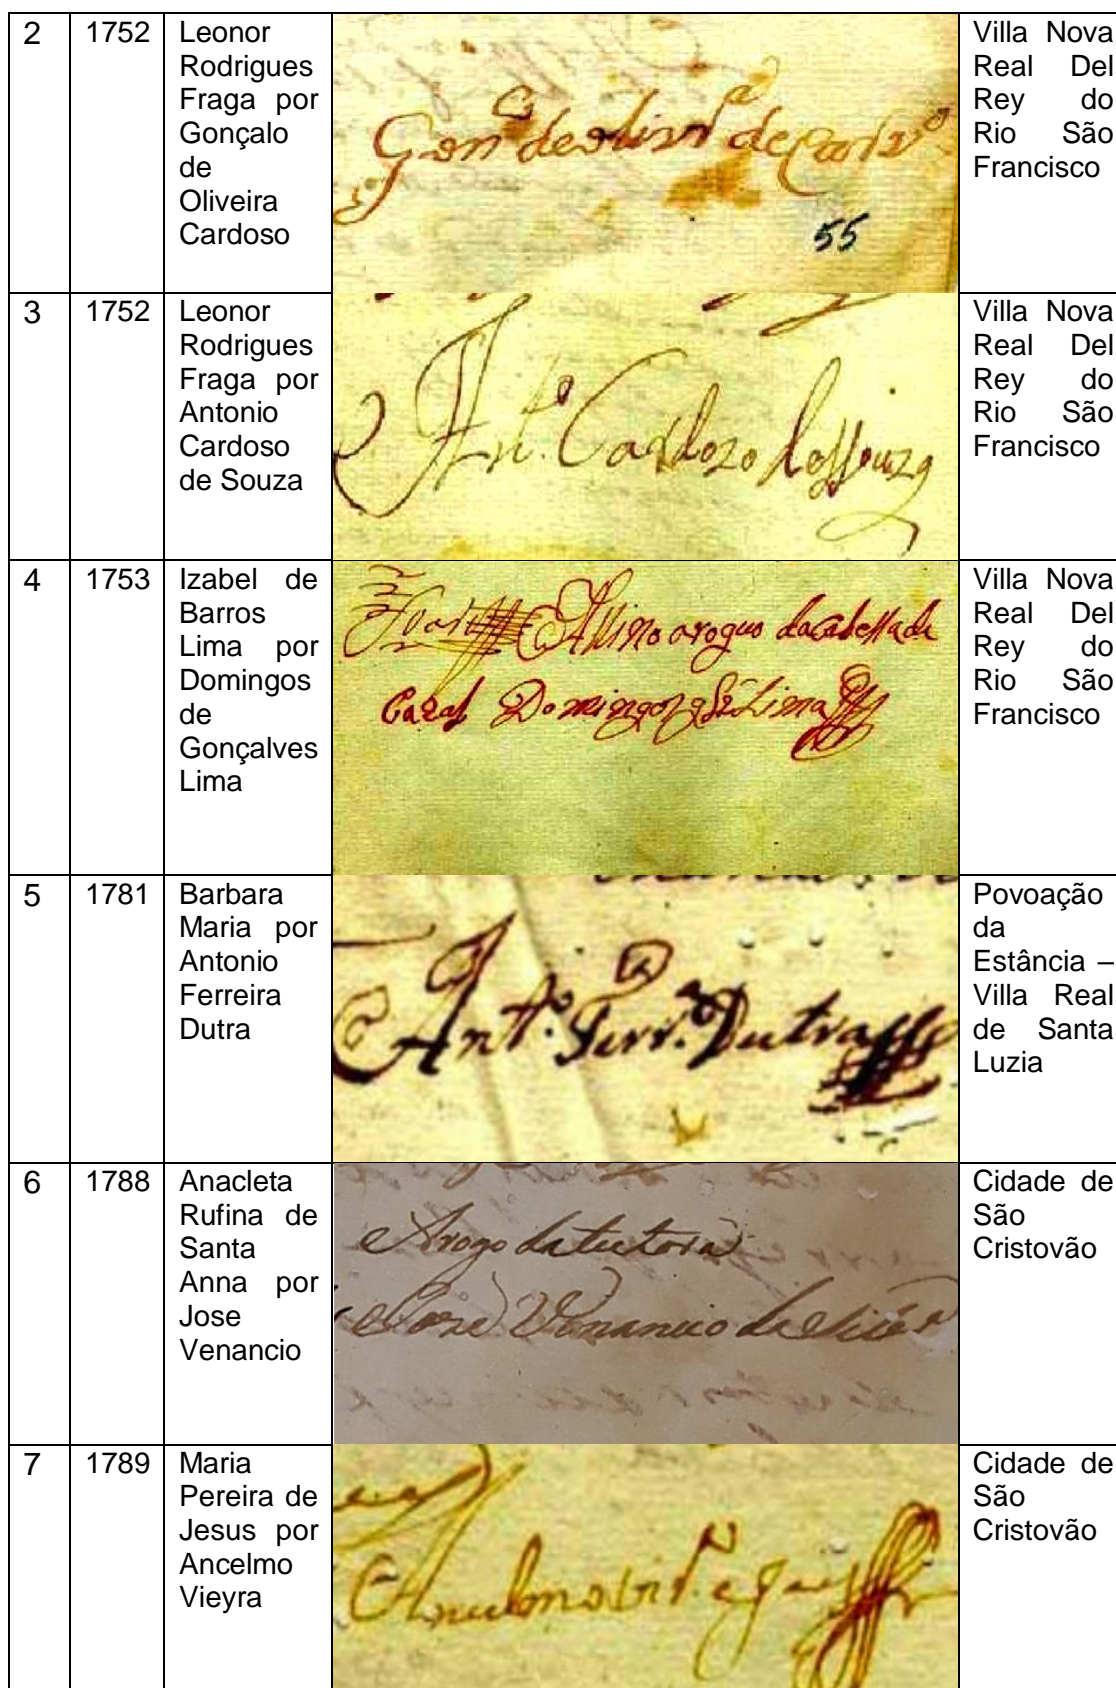 2
1752
Leonor
Rodrigues
Fraga por
Gonçalo
de
Oliveira
Cardoso
55
Villa Nova
Real Del
Rey do
Rio São
Francisco
3
1752
Leonor
Rodrigues
Fraga por
Antonio
Cardoso
de Souza
Antº. Cardozo deSouza
Villa Nova
Real Del
Rey do
Rio São
Francisco
4
1753
Izabel de
Barros
Lima por
Domingos
de
Gonçalves
Lima
Assino aroguo dacabessade
Cazal Domingos Lima
Villa Nova
Real Del
Rey do
Rio São
Francisco
5
1781
Barbara
Maria por
Antonio
Ferreira
Dutra
Antº. Ferrª. Dutra
Povoação
da
Estância –
Villa Real
de Santa
Luzia
6
1788
Anacleta
Rufina de
Santa
Anna por
Jose
Venancio
Arogo datutora
Jose Venancio da
Cidade de
São
Cristovão
7
1789
Maria
Pereira de
Jesus por
Ancelmo
Vieyra
Cidade de
São
Cristovão